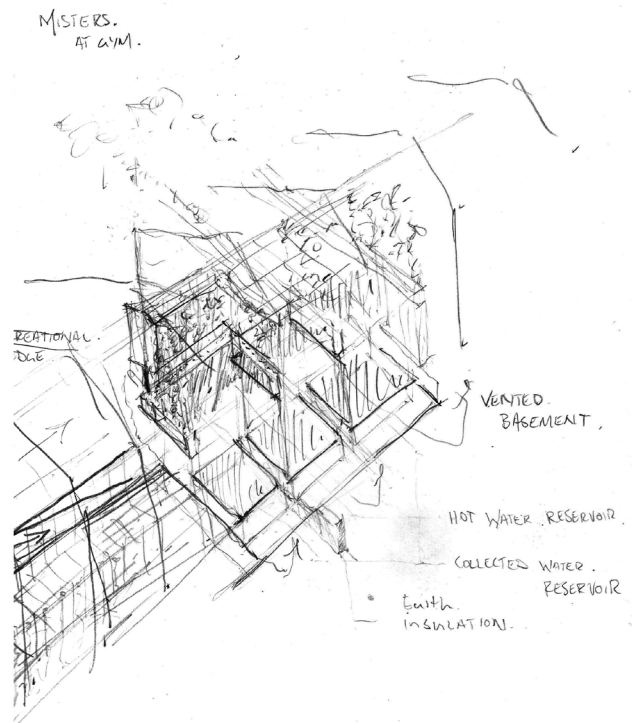 MISTERS.
AT GYM.
REATIONAL
DGE
VENTED
BASEMENT.
HOT WATER RESERVOIR
COLLECTED WATER.
RESERVOIR
Earth.
INSULATION.